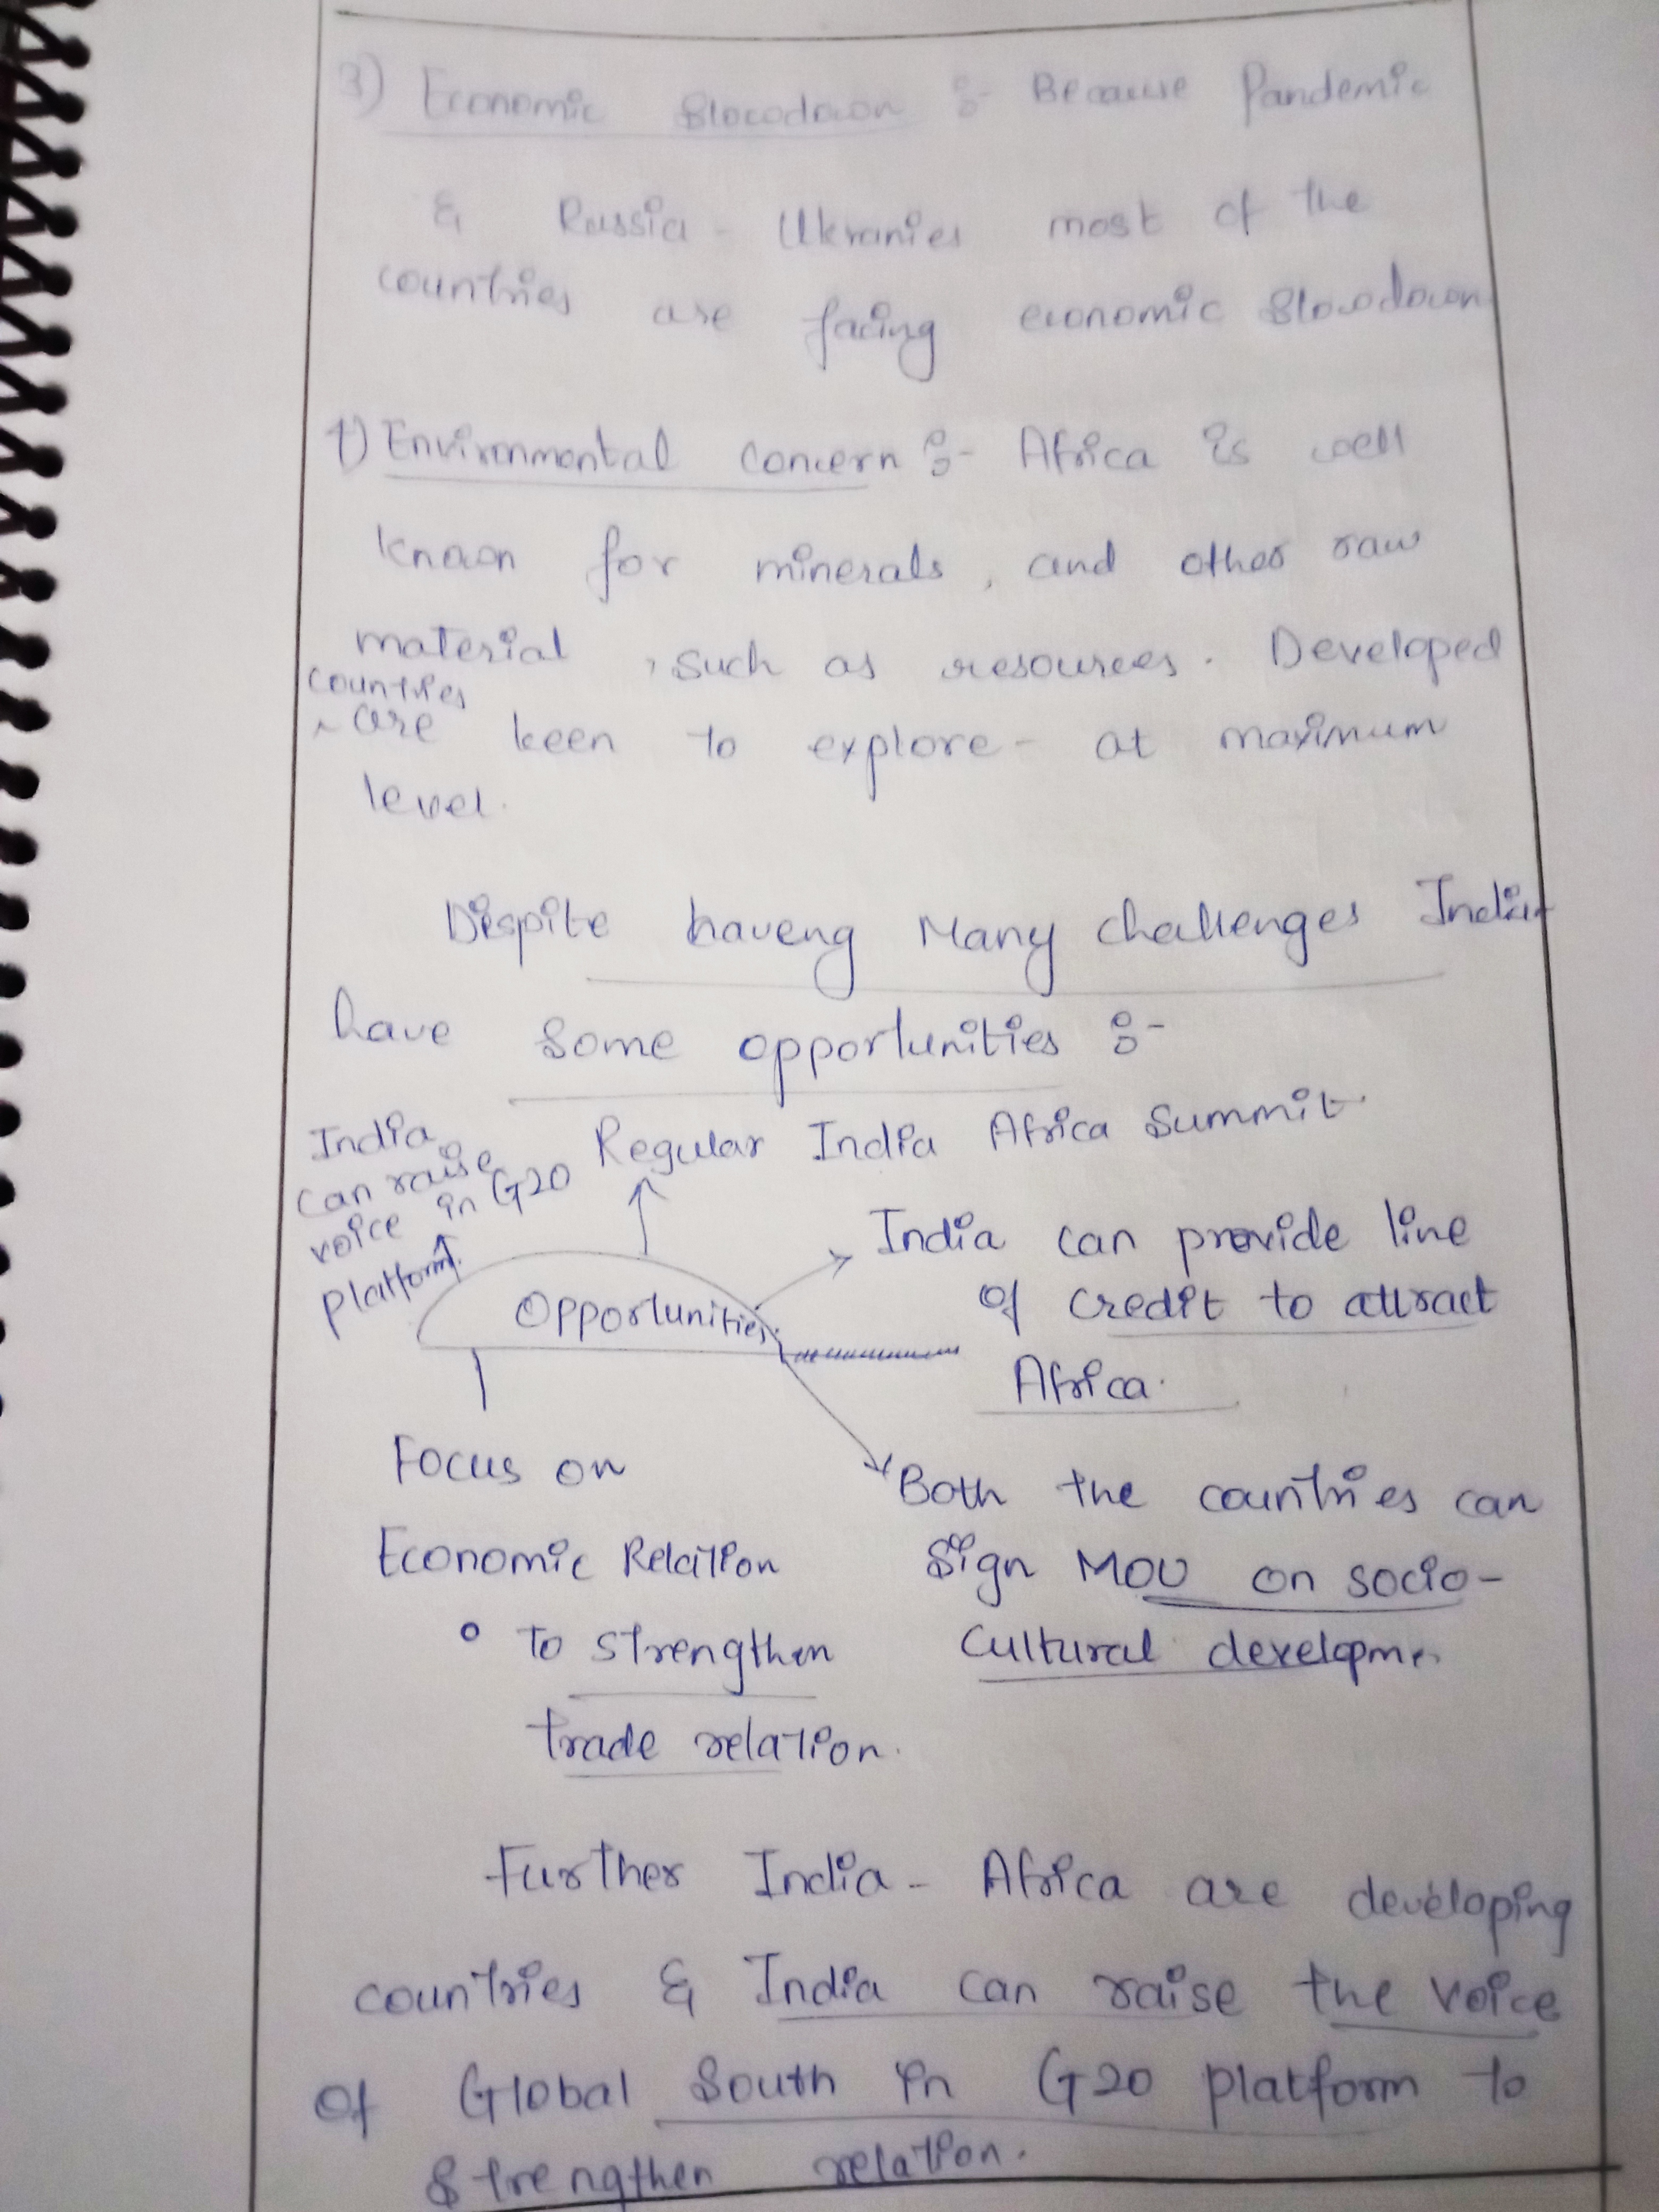 3) Economic Slowdown :- Because Pandemic
& Russia - Ukranies most of the
countries are facing economic Slowdown
4) Environmental concern :- Africa is well
known for minerals, and other raw
material, such as resources. Developed
countries
are keen to explore - at maximum
level.
Despite haveng Many challenges India
have Some opportunities :-
India
can raise
voice in G20
platform.
Regular India Africa Summit.
India can provide line
of credit to attract
Africa.
Opportunities.
Focus on
Economic Relation
° To strengthen
trade relation.
Both the countries can
Sign MOU on socio-
cultural developme
Further India - Africa are developing
countries & India can raise the voice
of Global South in G20 platform to
Strengthen relation.